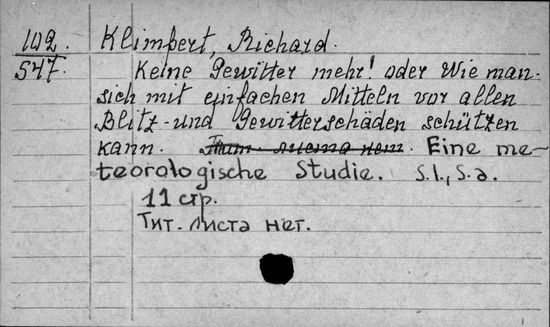 102. Klimpert, Richard.
547. Keine Gewitter mehr! oder Wie man
sich mit einfachen Mitteln vor allen
Blitz- und Gewitterschäden schützen
kann. Тит. листа нет. Eine me-
teorologische Studie. S.l., s.a.
11 стр.
Тит. листа нет.